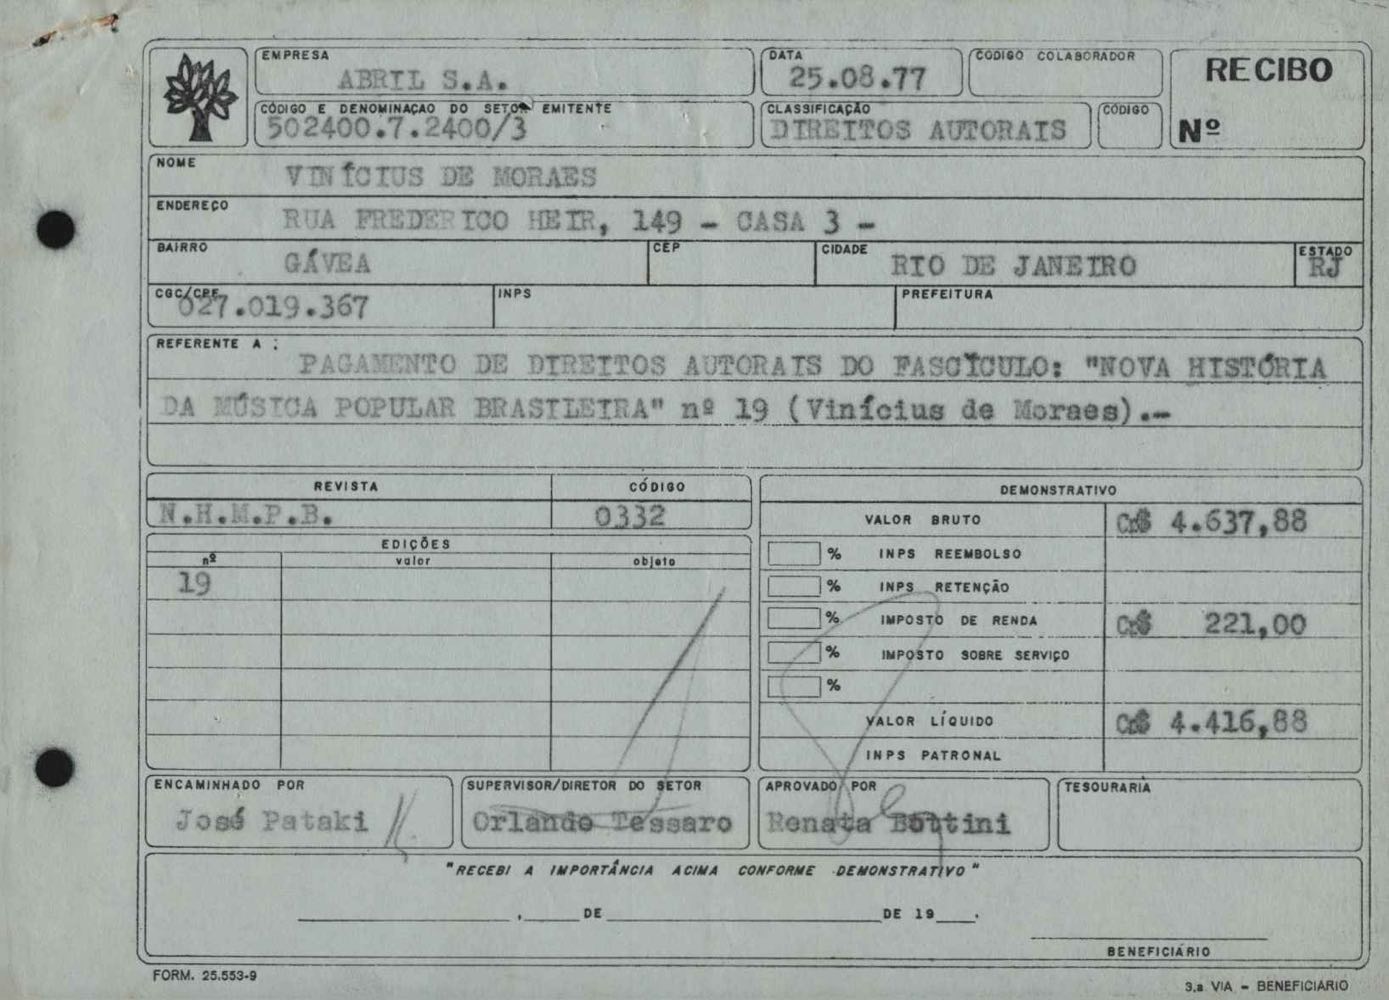 EMPRESA
ABRIL S.A.
DATA
25.08.77
CÓDIGO COLABORADOR
RECIBO
CÓDIGO E DENOMINAÇÃO DO SETOR EMITENTE
502400.7.2400/3
CLASSIFICAÇÃO
DIREITOS AUTORAIS
CÓDIGO
Nº
NOME
VINÍCIUS DE MORAES
ENDEREÇO
RUA FREDERICO HEIR, 149 - CASA 3 -
BAIRRO
GÁVEA
CEP
CIDADE
RIO DE JANEIRO
ESTADO
RJ
CGC/CPF
027.019.367
INPS
PREFEITURA
REFERENTE A :
PAGAMENTO DE DIREITOS AUTORAIS DO FASCÍCULO: "NOVA HISTÓRIA
DA MÚSICA POPULAR BRASILEIRA" nº 19 (Vinícius de Moraes).-
REVISTA CÓDIGO
N.H.M.P.B. 0332
EDIÇÕES
nº valor objeto
19
DEMONSTRATIVO
VALOR BRUTO Cr$ 4.637,88
% INPS REEMBOLSO
% INPS RETENÇÃO
% IMPOSTO DE RENDA Cr$ 221,00
% IMPOSTO SOBRE SERVIÇO
%
VALOR LÍQUIDO Cr$ 4.416,88
INPS PATRONAL
ENCAMINHADO POR
José Pataki
SUPERVISOR/DIRETOR DO SETOR
Orlando Tessaro
APROVADO POR
Renata Bottini
TESOURARIA
"RECEBI A IMPORTÂNCIA ACIMA CONFORME DEMONSTRATIVO"
, DE DE 19 .
BENEFICIÁRIO
FORM. 25.553-9
3.a VIA - BENEFICIÁRIO